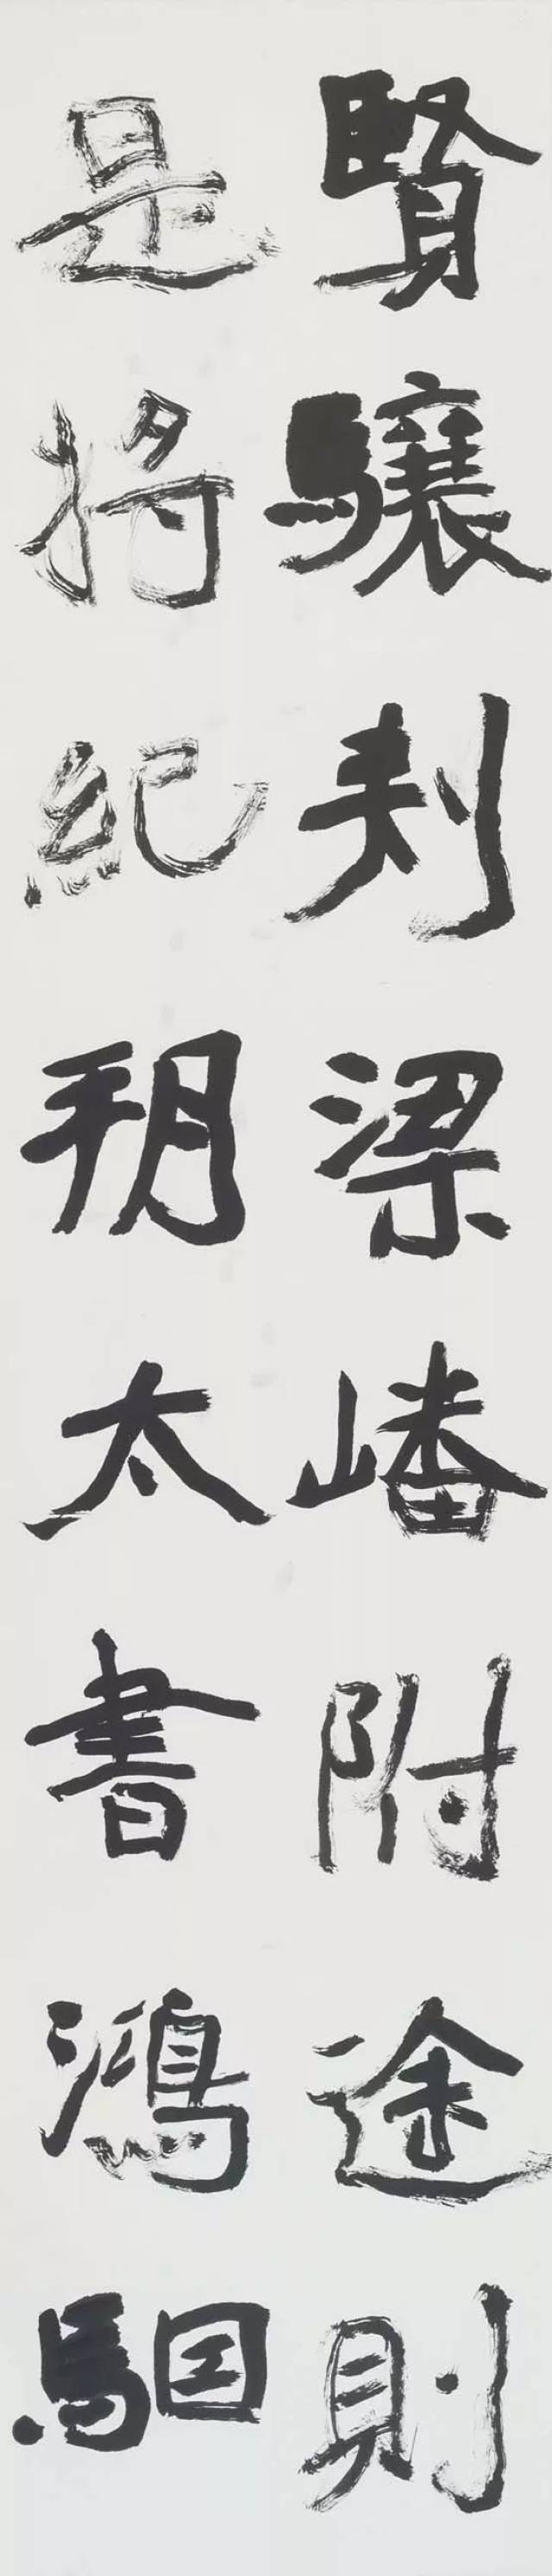 賢驤刾梁嶓附途則
是將紀朔太書鴻駰